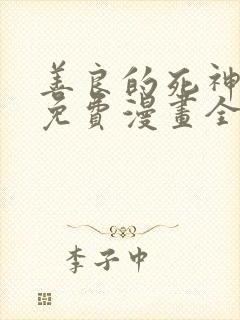 善良的死神
免費漫畫全
李子中